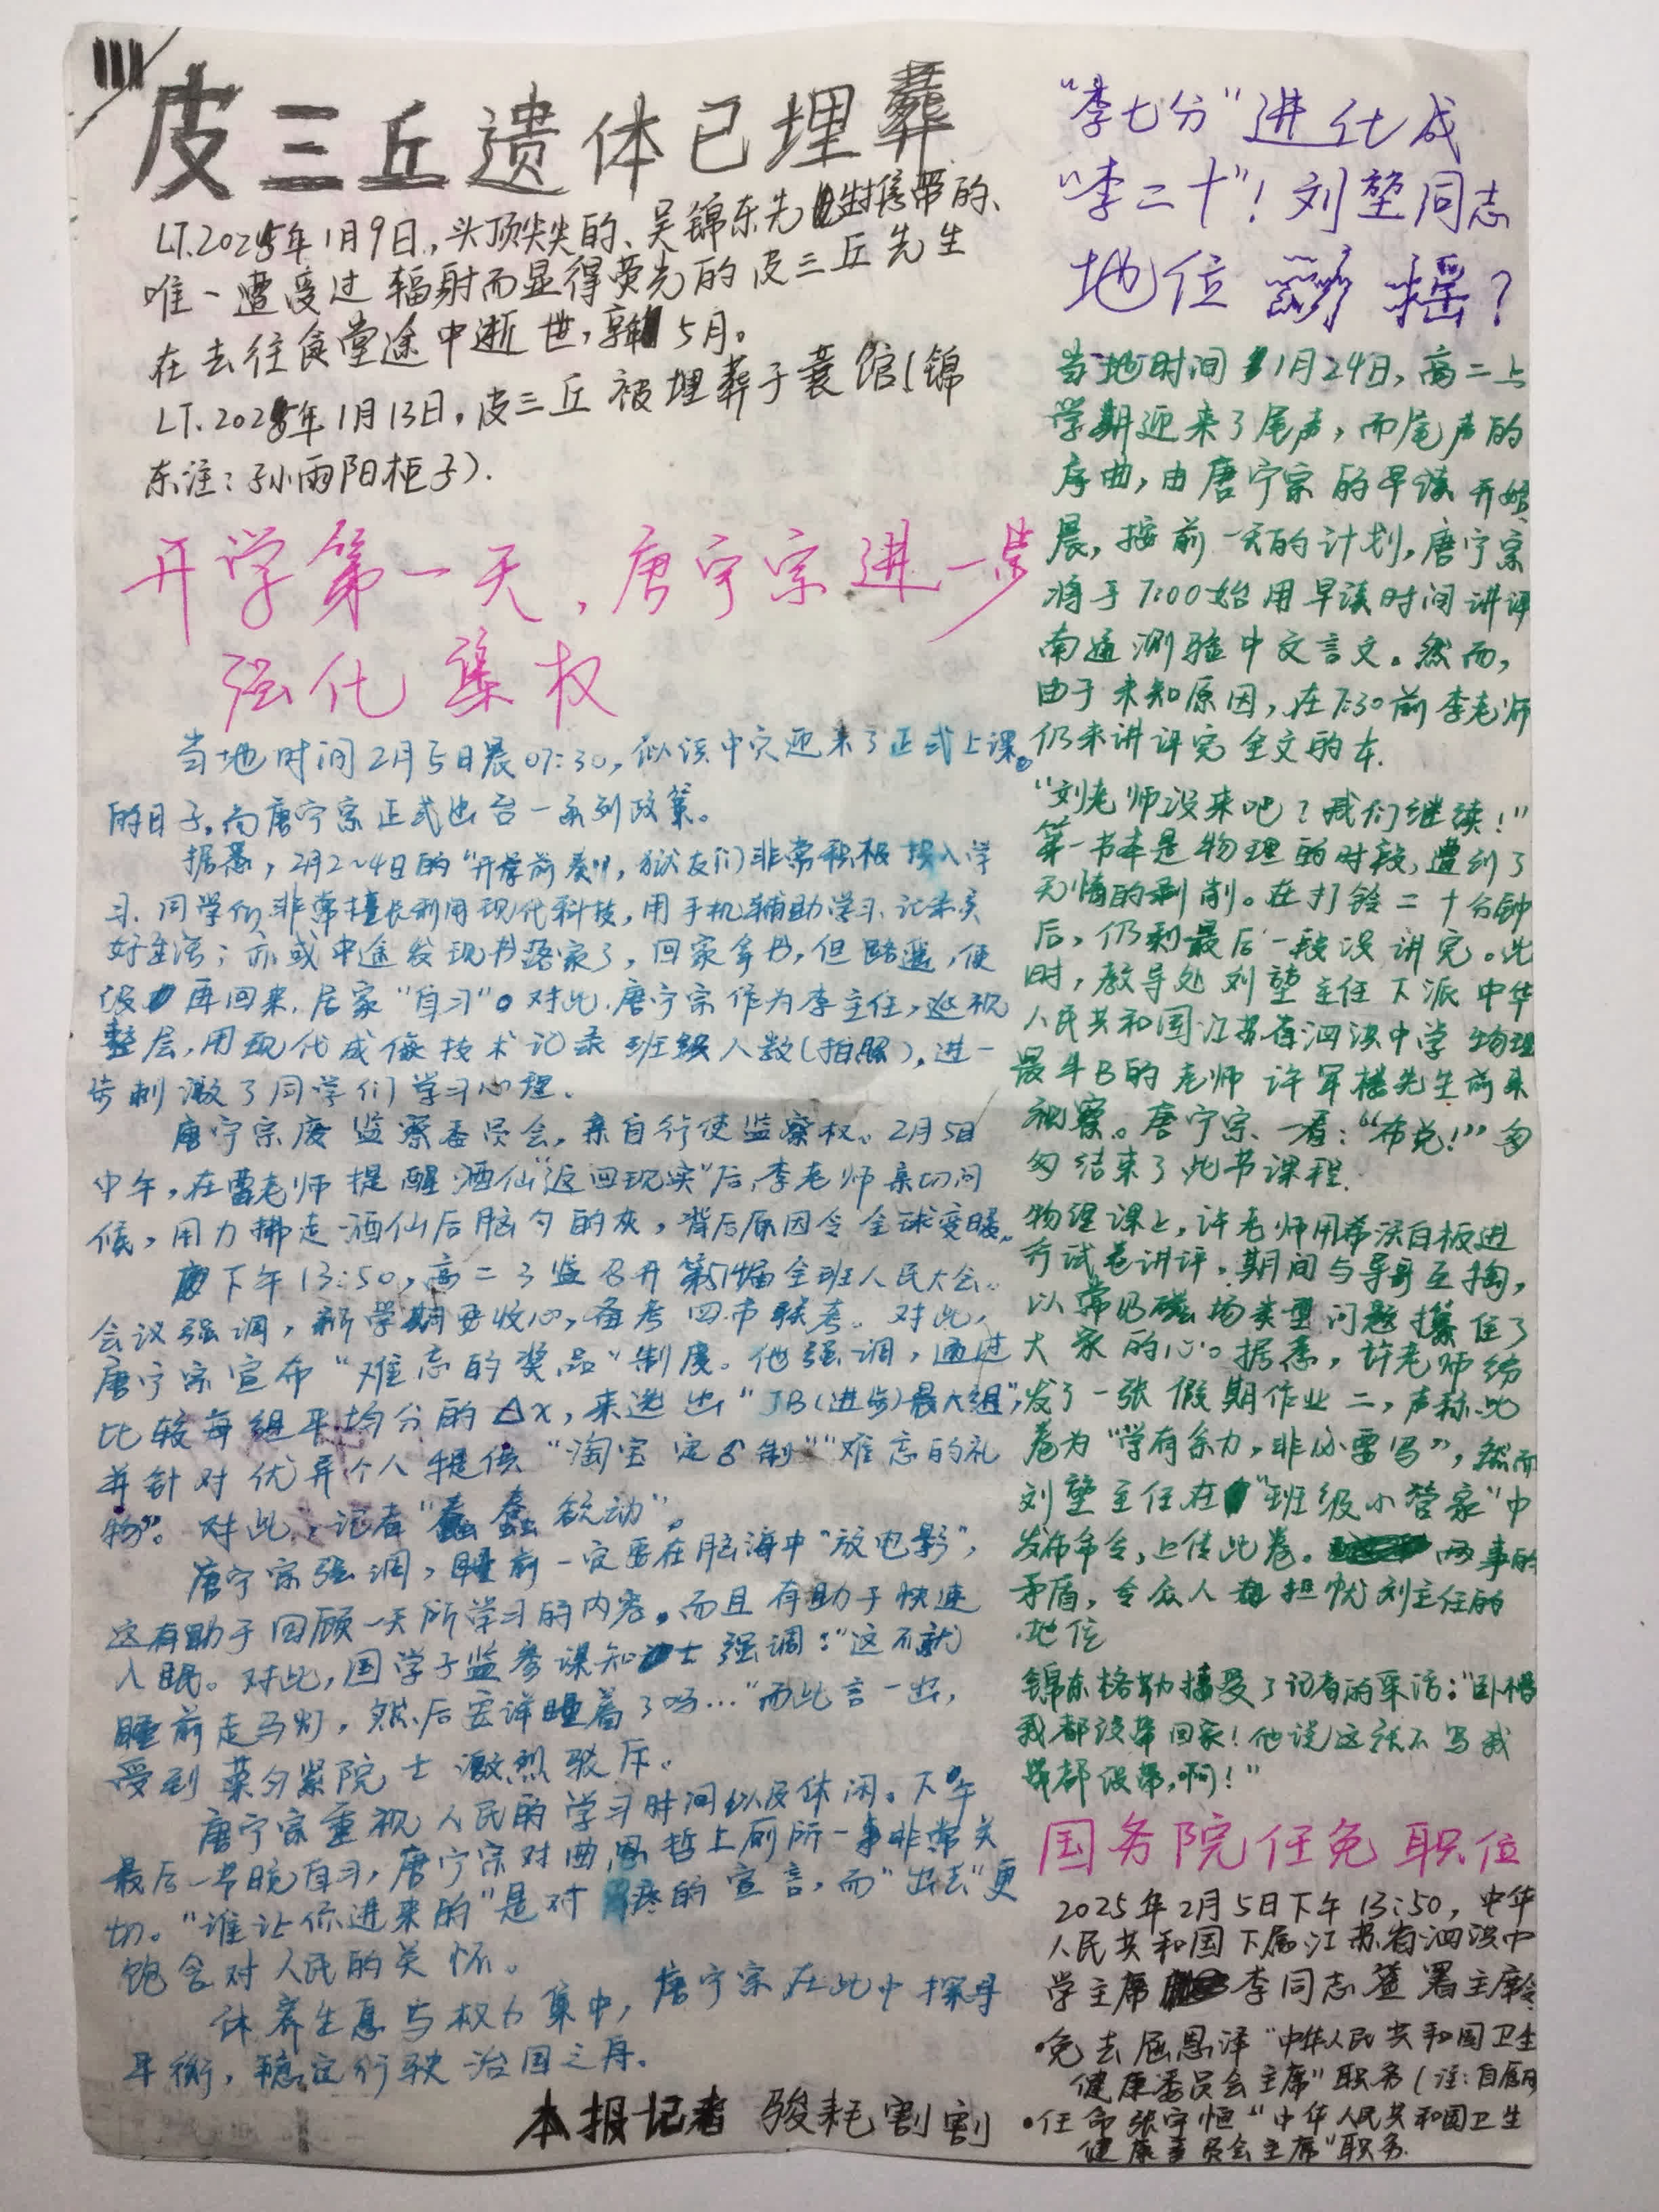 皮三丘遗体已埋葬
LT.2025年1月9日,头顶尖尖的、吴锦东先生携带的、
唯一遭受过辐射而显得荧光的皮三丘先生
在去往食堂途中逝世,享年5月。
LT.2025年1月13日,皮三丘被埋葬于囊馆(锦
东注:孙雨阳柜子).
开学第一天,唐宁宗进一步
强化集权
当地时间2月5日晨07:30,似洪中穴迎来了正式上课
的日子。而唐宁宗正式出台一系列政策。
据悉,2月2~4日的"开学前奏",狱友们非常积极投入学
习.同学们非常擅长利用现代科技,用手机辅助学习、记录美
好生活;亦或中途发现书落家了,回家拿书,但路遥,便
没再回来,居家"自习"。对此,唐宁宗作为李主任,巡视
整层,用现代成像技术记录班级人数(拍照),进一
步刺激了同学们学习心理.
唐宁宗废监察委员会,亲自行使监察权。2月5日
中午,在雷老师提醒酒仙"返回现实"后,李老师亲切问
候,用力拂走酒仙后脑勺的灰,背后原因令全球变暖。
下午13:50,高二3监召开第514届全班人民大会。
会议强调,新学期要收心,备考四市联考。对此,
唐宁宗宣布"难忘的奖品"制度。他强调,通过
比较每组平均分的Δx,来选出"JB(进步)最大组",
并针对优异个人提供"淘宝定制""难忘的礼
物"。对此,记者"蠢蠢欲动"。
唐宁宗强调,睡前一定要在脑海中"放电影",
这有助于回顾一天所学习的内容,而且有助于快速
入眠。对此,国学子监参谋知士强调:"这不就
睡前走马灯,然后安详睡着了吗…"而此言一出,
受到菜勺紧院士激烈驳斥。
唐宁宗重视人民的学习时间以及休闲。下午
最后一节晚自习,唐宁宗对曲恩哲上厕所一事非常关
切。"谁让你进来的"是对的宣言,而"出去"更
饱含对人民的关怀。
休养生息与权力集中,唐宁宗在此中探寻
平衡,稳定行驶治国之舟。
本报记者 骏耗割割
"李七分"进化成
"李二十"!刘堃同志
地位动摇?
当地时间1月24日,高二上
学期迎来了尾声,而尾声的
序曲,由唐宁宗的早读开始
晨,按前一天的计划,唐宁宗
将于7:00始用早读时间讲评
南通测验中文言文。然而,
由于未知原因,在7:30前李老师
仍未讲评完全文的本.
"刘老师没来吧?我们继续!"
第一节本是物理的时段,遭到了
无情的剥削。在打铃二十分钟
后,仍剩最后一段没讲完。此
时,教导处刘堃主任下派中华
人民共和国江苏省泗洪中学物理
最牛B的老师许军楼先生前来
视察。唐宁宗一看:"布兑!"匆
匆结束了此节课程.
物理课上,许老师用希沃白板进
行试卷讲评,期间与导哥互掏,
以常见磁场类型问题攥住了
大家的心。据悉,许老师给
发了一张假期作业二,声称此
卷为"学有余力,非必要写",然而
刘堃主任在"班级小管家"中
发布命令,上传此卷。两事的
矛盾,令众人担忧刘主任的
地位
锦东格勒接受了记者的采访:"卧槽
我都没带回家!他说这张不写我
都没带,啊!"
国务院任免职位
2025年2月5日下午13:50,中华
人民共和国下属江苏省泗洪中
学主席李同志签署主席令
·免去屈恩泽"中华人民共和国卫生
健康委员会主席"职务(注:自愿
·任命张宇恒"中华人民共和国卫生
健康委员会主席"职务.